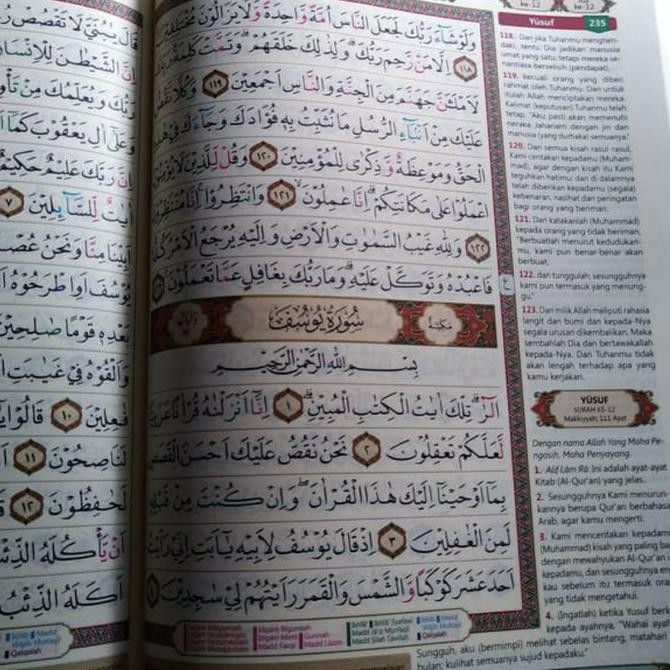 Yūsuf
235
وَلَوْ شَاۤءَ رَبُّكَ لَجَعَلَ النَّاسَ اُمَّةً وَّاحِدَةً وَّلَا يَزَالُوْنَ مُخْتَلِفِيْنَ
١١٨ اِلَّا مَنْ رَّحِمَ رَبُّكَ ۗوَلِذٰلِكَ خَلَقَهُمْ ۗوَتَمَّتْ كَلِمَةُ رَبِّكَ
لَاَمْلَـَٔنَّ جَهَنَّمَ مِنَ الْجِنَّةِ وَالنَّاسِ اَجْمَعِيْنَ ١١٩ وَكُلًّا نَّقُصُّ
عَلَيْكَ مِنْ اَنْۢبَاۤءِ الرُّسُلِ مَا نُثَبِّتُ بِهٖ فُؤَادَكَ وَجَاۤءَكَ فِيْ هٰذِهِ
الْحَقُّ وَمَوْعِظَةٌ وَّذِكْرٰى لِلْمُؤْمِنِيْنَ ١٢٠ وَقُلْ لِّلَّذِيْنَ لَا يُؤْمِنُوْنَ
اعْمَلُوْا عَلٰى مَكَانَتِكُمْۗ اِنَّا عٰمِلُوْنَۙ ١٢١ وَانْتَظِرُوْاۚ اِنَّا مُنْتَظِرُوْنَ
١٢٢ وَلِلّٰهِ غَيْبُ السَّمٰوٰتِ وَالْاَرْضِ وَاِلَيْهِ يُرْجَعُ الْاَمْرُ كُلُّهٗ
فَاعْبُدْهُ وَتَوَكَّلْ عَلَيْهِۗ وَمَا رَبُّكَ بِغَافِلٍ عَمَّا تَعْمَلُوْنَ
مَكِّيَّةٌ سُوْرَةُ يُوْسُفَ
بِسْمِ اللّٰهِ الرَّحْمٰنِ الرَّحِيْمِ
الۤرٰ ۗتِلْكَ اٰيٰتُ الْكِتٰبِ الْمُبِيْنِۗ ١ اِنَّآ اَنْزَلْنٰهُ قُرْاٰنًا عَرَبِيًّا
لَّعَلَّكُمْ تَعْقِلُوْنَ ٢ نَحْنُ نَقُصُّ عَلَيْكَ اَحْسَنَ الْقَصَصِ
بِمَآ اَوْحَيْنَآ اِلَيْكَ هٰذَا الْقُرْاٰنَۖ وَاِنْ كُنْتَ مِنْ قَبْلِهٖ
لَمِنَ الْغٰفِلِيْنَ ٣ اِذْ قَالَ يُوْسُفُ لِاَبِيْهِ يٰٓاَبَتِ اِنِّيْ رَاَيْتُ
اَحَدَ عَشَرَ كَوْكَبًا وَّالشَّمْسَ وَالْقَمَرَ رَاَيْتُهُمْ لِيْ سٰجِدِيْنَ ٤
118. Dan jika Tuhanmu menghen-
daki, tentu Dia jadikan manusia
umat yang satu, tetapi mereka se-
nantiasa berselisih (pendapat),
119. kecuali orang yang diberi
rahmat oleh Tuhanmu. Dan untuk
itulah Allah menciptakan mereka.
Kalimat (keputusan) Tuhanmu telah
tetap, "Aku pasti akan memenuhi
neraka Jahanam dengan jin dan
manusia (yang durhaka) semuanya."
120. Dan semua kisah rasul-rasul,
Kami ceritakan kepadamu (Muham-
mad), agar dengan kisah itu Kami
teguhkan hatimu; dan di dalamnya
telah diberikan kepadamu (segala)
kebenaran, nasihat dan peringatan
bagi orang yang beriman.
121. Dan katakanlah (Muhammad)
kepada orang yang tidak beriman,
"Berbuatlah menurut kedudukan-
mu, kami pun benar-benar akan
berbuat,
122. dan tunggulah, sesungguhnya
kami pun termasuk yang menung-
gu."
123. Dan milik Allah meliputi rahasia
langit dan bumi dan kepada-Nya
segala urusan dikembalikan. Maka
sembahlah Dia dan bertawakallah
kepada-Nya. Dan Tuhanmu tidak
akan lengah terhadap apa yang
kamu kerjakan.
YŪSUF
SURAH KE-12
Makkiyyah; 111 Ayat
Dengan nama Allah Yang Maha Pe-
ngasih, Maha Penyayang.
1. Alif Lām Rā. Ini adalah ayat-ayat
Kitab (Al-Qur'an) yang jelas.
2. Sesungguhnya Kami menurun-
kannya berupa Qur'an berbahasa
Arab, agar kamu mengerti.
3. Kami menceritakan kepadamu
(Muhammad) kisah yang paling ba
dengan mewahyukan Al-Qur'an i
kepadamu, dan sesungguhnya en
kau sebelum itu termasuk oran
yang tidak mengetahui.
4. (Ingatlah) ketika Yusuf berk
kepada ayahnya, "Wahai ayah
Sungguh, aku (bermimpi) melihat sebelas bintang, matahari
bulan; kulihat semuanya sujud kepadaku."